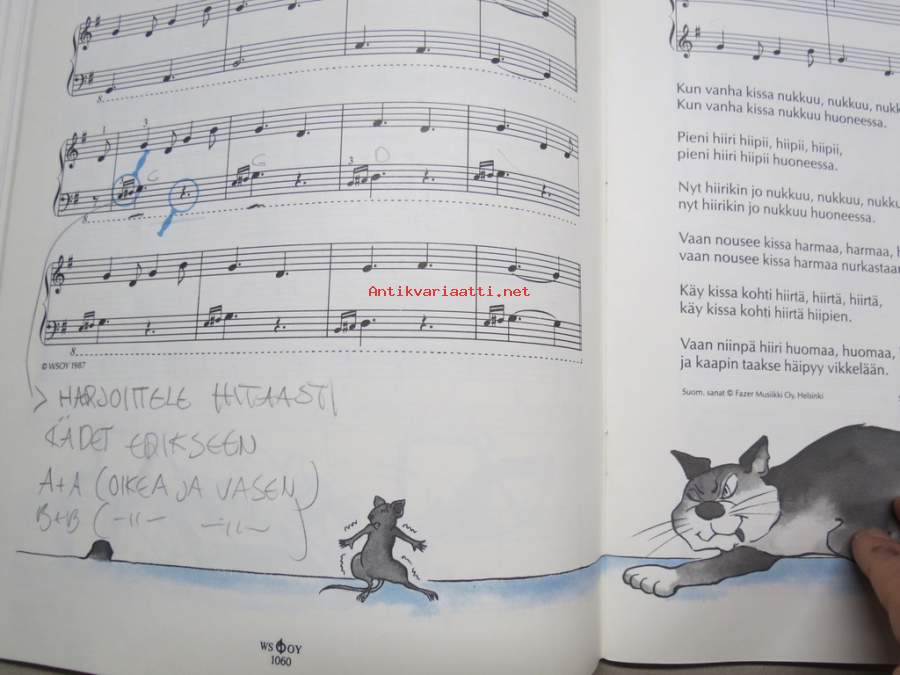 8.
1 3
G G 3 D
8.
8.
© WSOY 1987
> HARJOITTELE HITAASTI
KÄDET ERIKSEEN
A+A (OIKEA JA VASEN)
B+B ( –"– –"– )
WS OY
1060
Kun vanha kissa nukkuu, nukkuu, nukk
Kun vanha kissa nukkuu huoneessa.
Pieni hiiri hiipii, hiipii, hiipii,
pieni hiiri hiipii huoneessa.
Nyt hiirikin jo nukkuu, nukkuu, nukku
nyt hiirikin jo nukkuu huoneessa.
Vaan nousee kissa harmaa, harmaa, h
vaan nousee kissa harmaa nurkastaan
Käy kissa kohti hiirtä, hiirtä, hiirtä,
käy kissa kohti hiirtä hiipien.
Vaan niinpä hiiri huomaa, huomaa,
ja kaapin taakse häipyy vikkelään.
Suom. sanat © Fazer Musiikki Oy, Helsinki
Antikvariaatti.net